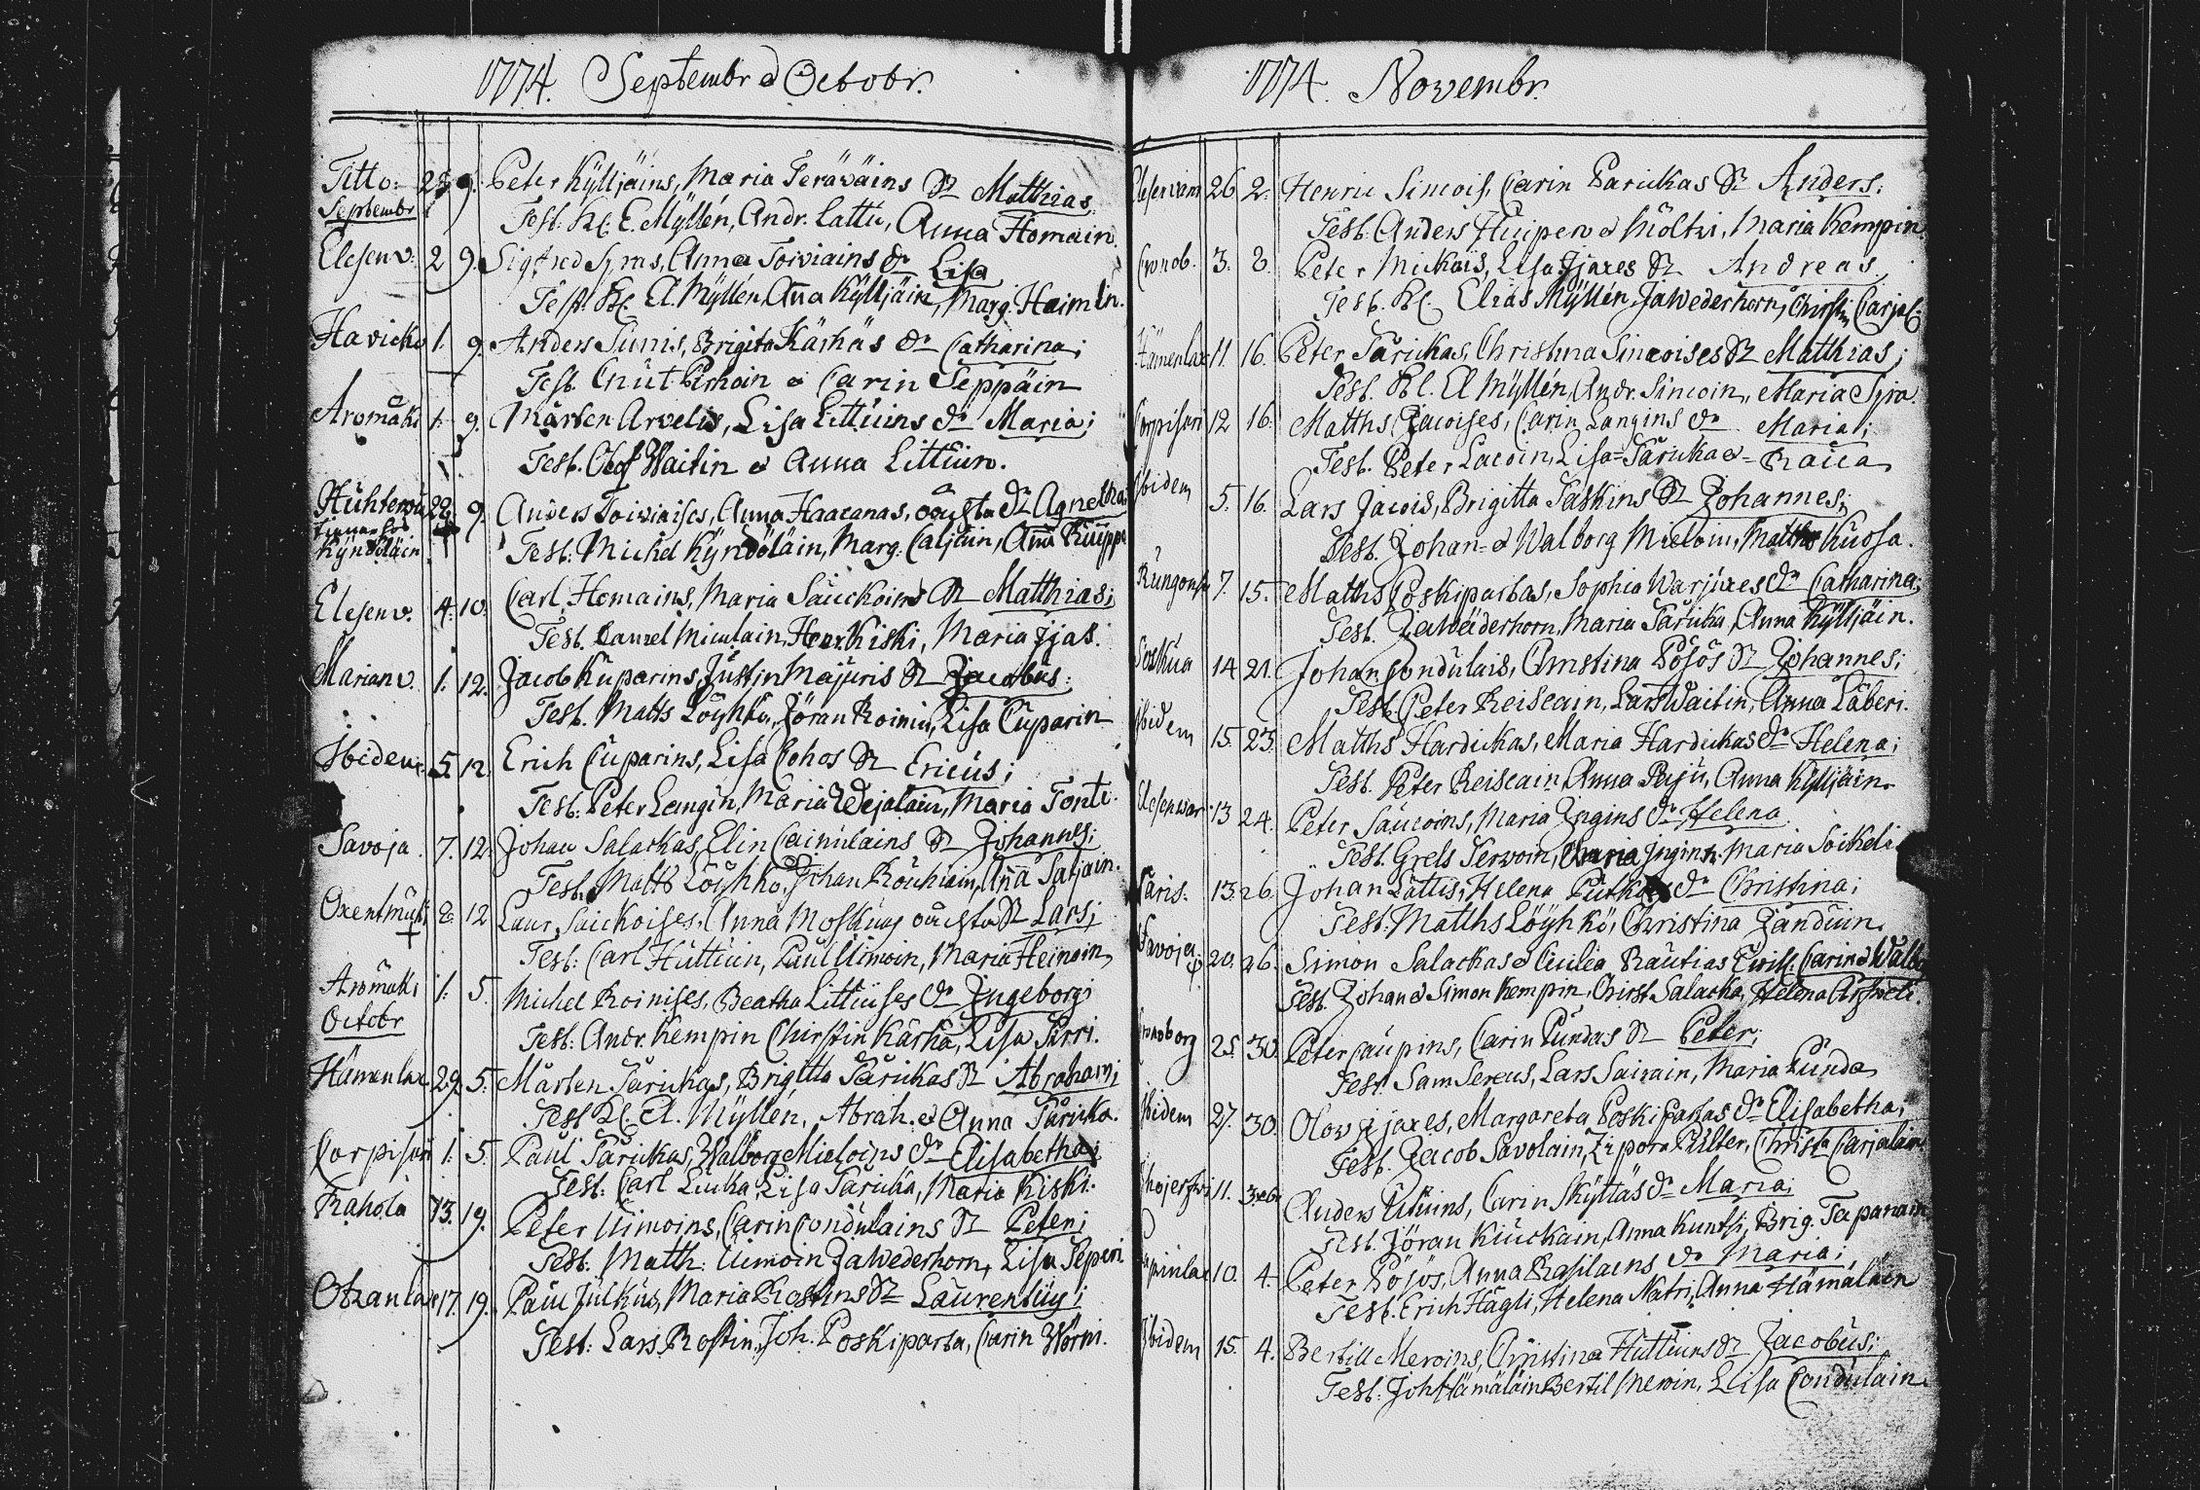 1774. Septembr o Octobr.
Titto: 28 9. Peter Kylljäins, Maria Teräväins Sr Matthias.
Septembr Test. Kl. E. Myllén, Andr. Lattu, Anna Homain.
Elesenv. 2 9. Sigfred Syms, Anna Toiviains dr Lisa
Test. Kl. El. Myllén, Anna Kylljäin, Marg. Haimlin.
Havicko 1. 9. Anders Sunis, Brigita Kärhäs dr Catharina;
Test. Cnut Pirhoin o Carin Seppäin
Aromäki 1. 9. Mårten Arvelis, Lisa Littuins dr Maria;
Test. Olof Waitin o Anna Littuin.
28. 9. Anders Toiviaises, Anna Haacanas, oäusta dr Agnetha
Kyndöläin Test: Michel Kyndöläin, Marg. Caljuin, Anna Ruippo
Elesenv. 4. 10. Carl Homains, Maria Sauckoins Sr Matthias;
Test. Daniel Miculain, Henr. Kiski, Maria Jjas.
Marianv. 1. 12. Jacob Kuparins, Justin Majuris Sr Jacobus.
Test. Matts Löyhkö, Jöran Roinin, Lisa Cuparin
Ibidem. 5. 12. Erich Cuparins, Lisa Cohos Sr Ericus;
Test. Peter Langin, Maria Wejalain, Maria Tonti.
Savoja. 7. 12. Johan Salackas, Elin Cainulains Sr Johannes;
Test. Matts Löyhkö, Johan Rouhiain, Anna Saljain.
8. 12 Laur. Saickoises, Anna Moskuas oäusta Sr Lars;
Test: Carl Huttuin, Paul Uimoin, Maria Heinoin
Aromäki 1. 5. Michel Roinises, Beatha Littuises dr Ingeborg;
Octobr Test: Andr. Kempin Chirstin Kärhä, Lisa Pirri.
Hämenlax 29. 5. Mårten Tarickas, Brigitta Tarickas Sr Abraham;
Test Kl. El. Myllén, Abrah. o Anna Taricka.
Corpisari 1. 5. Paul Tarickas, Walborg Mieloins dr Elisabetha;
Test: Carl Lucka, Lisa Taricka, Maria Kiski.
Rahola 13. 19. Peter Uimoins, Carin Condulains Sr Peter;
Test: Matth. Uimoin Jawederhorn, Lisa Seperi
Otzanlax 17. 19. Paul Julkus, Maria Rostins Sr Laurentius;
Test: Lars Rostin, Joh. Poskiparta, Carin Wörni.
1774. Novembr.
26 2. Henric Sinois, Carin Parickas Sr Anders.
Test. Anders Huipero o Möltzi, Maria Kempin
Cronob. 3. 8. Peter Mickois, Lisa Jjaxes Sr Andreas
Test. Kl. Elias Myllén, Jawederhorn, Chirstin Carjal.
Hämenlax 11. 16. Peter Tarickas, Christina Sincoises Sr Matthias;
Test. Kl. El Myllén, Andr. Sincoin, Maria Sjro.
Corpisari 12 16. Matths Jacoises, Carin Langins dr Maria;
Test. Peter Lacoin, Lisa Taricka o Raica
Ibidem 5. 16. Lars Jacois, Brigitta Paskins Sr Johannes;
Test. Johan o Walborg Mieloin, Matths Kuosa.
7. 15. Matths Poskipartas, Sophia Warjuxes dr Catharina;
Test. Jawäderhorn, Maria Taricka, Anna Kylljäin.
Soskua 14 21. Johan Condulais, Christina Pösös Sr Johannes;
Test. Peter Reiseain, Lars Waitin, Anna Läberi.
Ibidem 15. 23. Matths Hardickas, Maria Hardickas dr Helena;
Test. Peter Reiseain Anna Paju, Anna Kylljäin.
Elesenvar 13 24. Peter Saucoins, Maria Ingins dr Helena
Test. Grels Terwoin, Ingins. Maria Soikeli
Paris. 13. 26. Johan Lattis, Helena dr Christina;
Test. Matths Löyhkö, Christina Janduin.
Savoja 20. 26. Simon Salackas o Cicilia Rautias Carin o Walb
Test. Johan o Simon Kempin, Christ. Salacka, Helena
Cronoborg 25. 30. Peter Caupins, Carin Pundas Sr Peter;
Test. Sam Sereus, Lars Sairain, Maria Punda
Ibidem 27. 30. Olow Jjaxes, Margareta Poskipartas dr Elisabetha;
Test. Jacob Savolain, Zipora Pulter, Christ. Carjalain.
11. Anders Uituins, Carin Skyttäs dr Maria;
Test. Jöran Kiuckain, Anna Kuntsi, Brig. Tapanain
10. 4. Peter Pösös, Anna Rasilains dr Maria;
Test. Erich Hägli, Helena Natri, Anna Hämäläin
Ibidem 15. 4. Bertill Meroins, Christina Huttuins Sr Jacobus;
Test: Joh Hämäläin Bertil Meroin, Lisa Condulain.